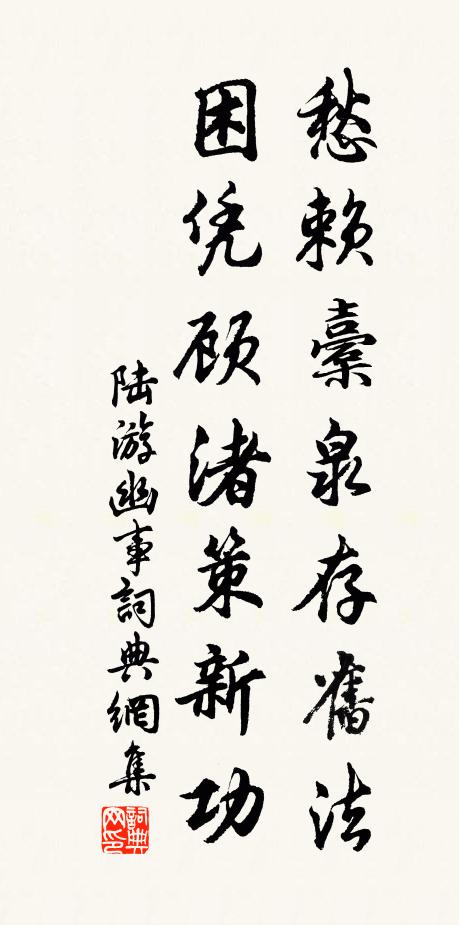 愁赖橐泉存旧法
困凭顾渚策新功
陆游幽事詞典網集
詞典网印